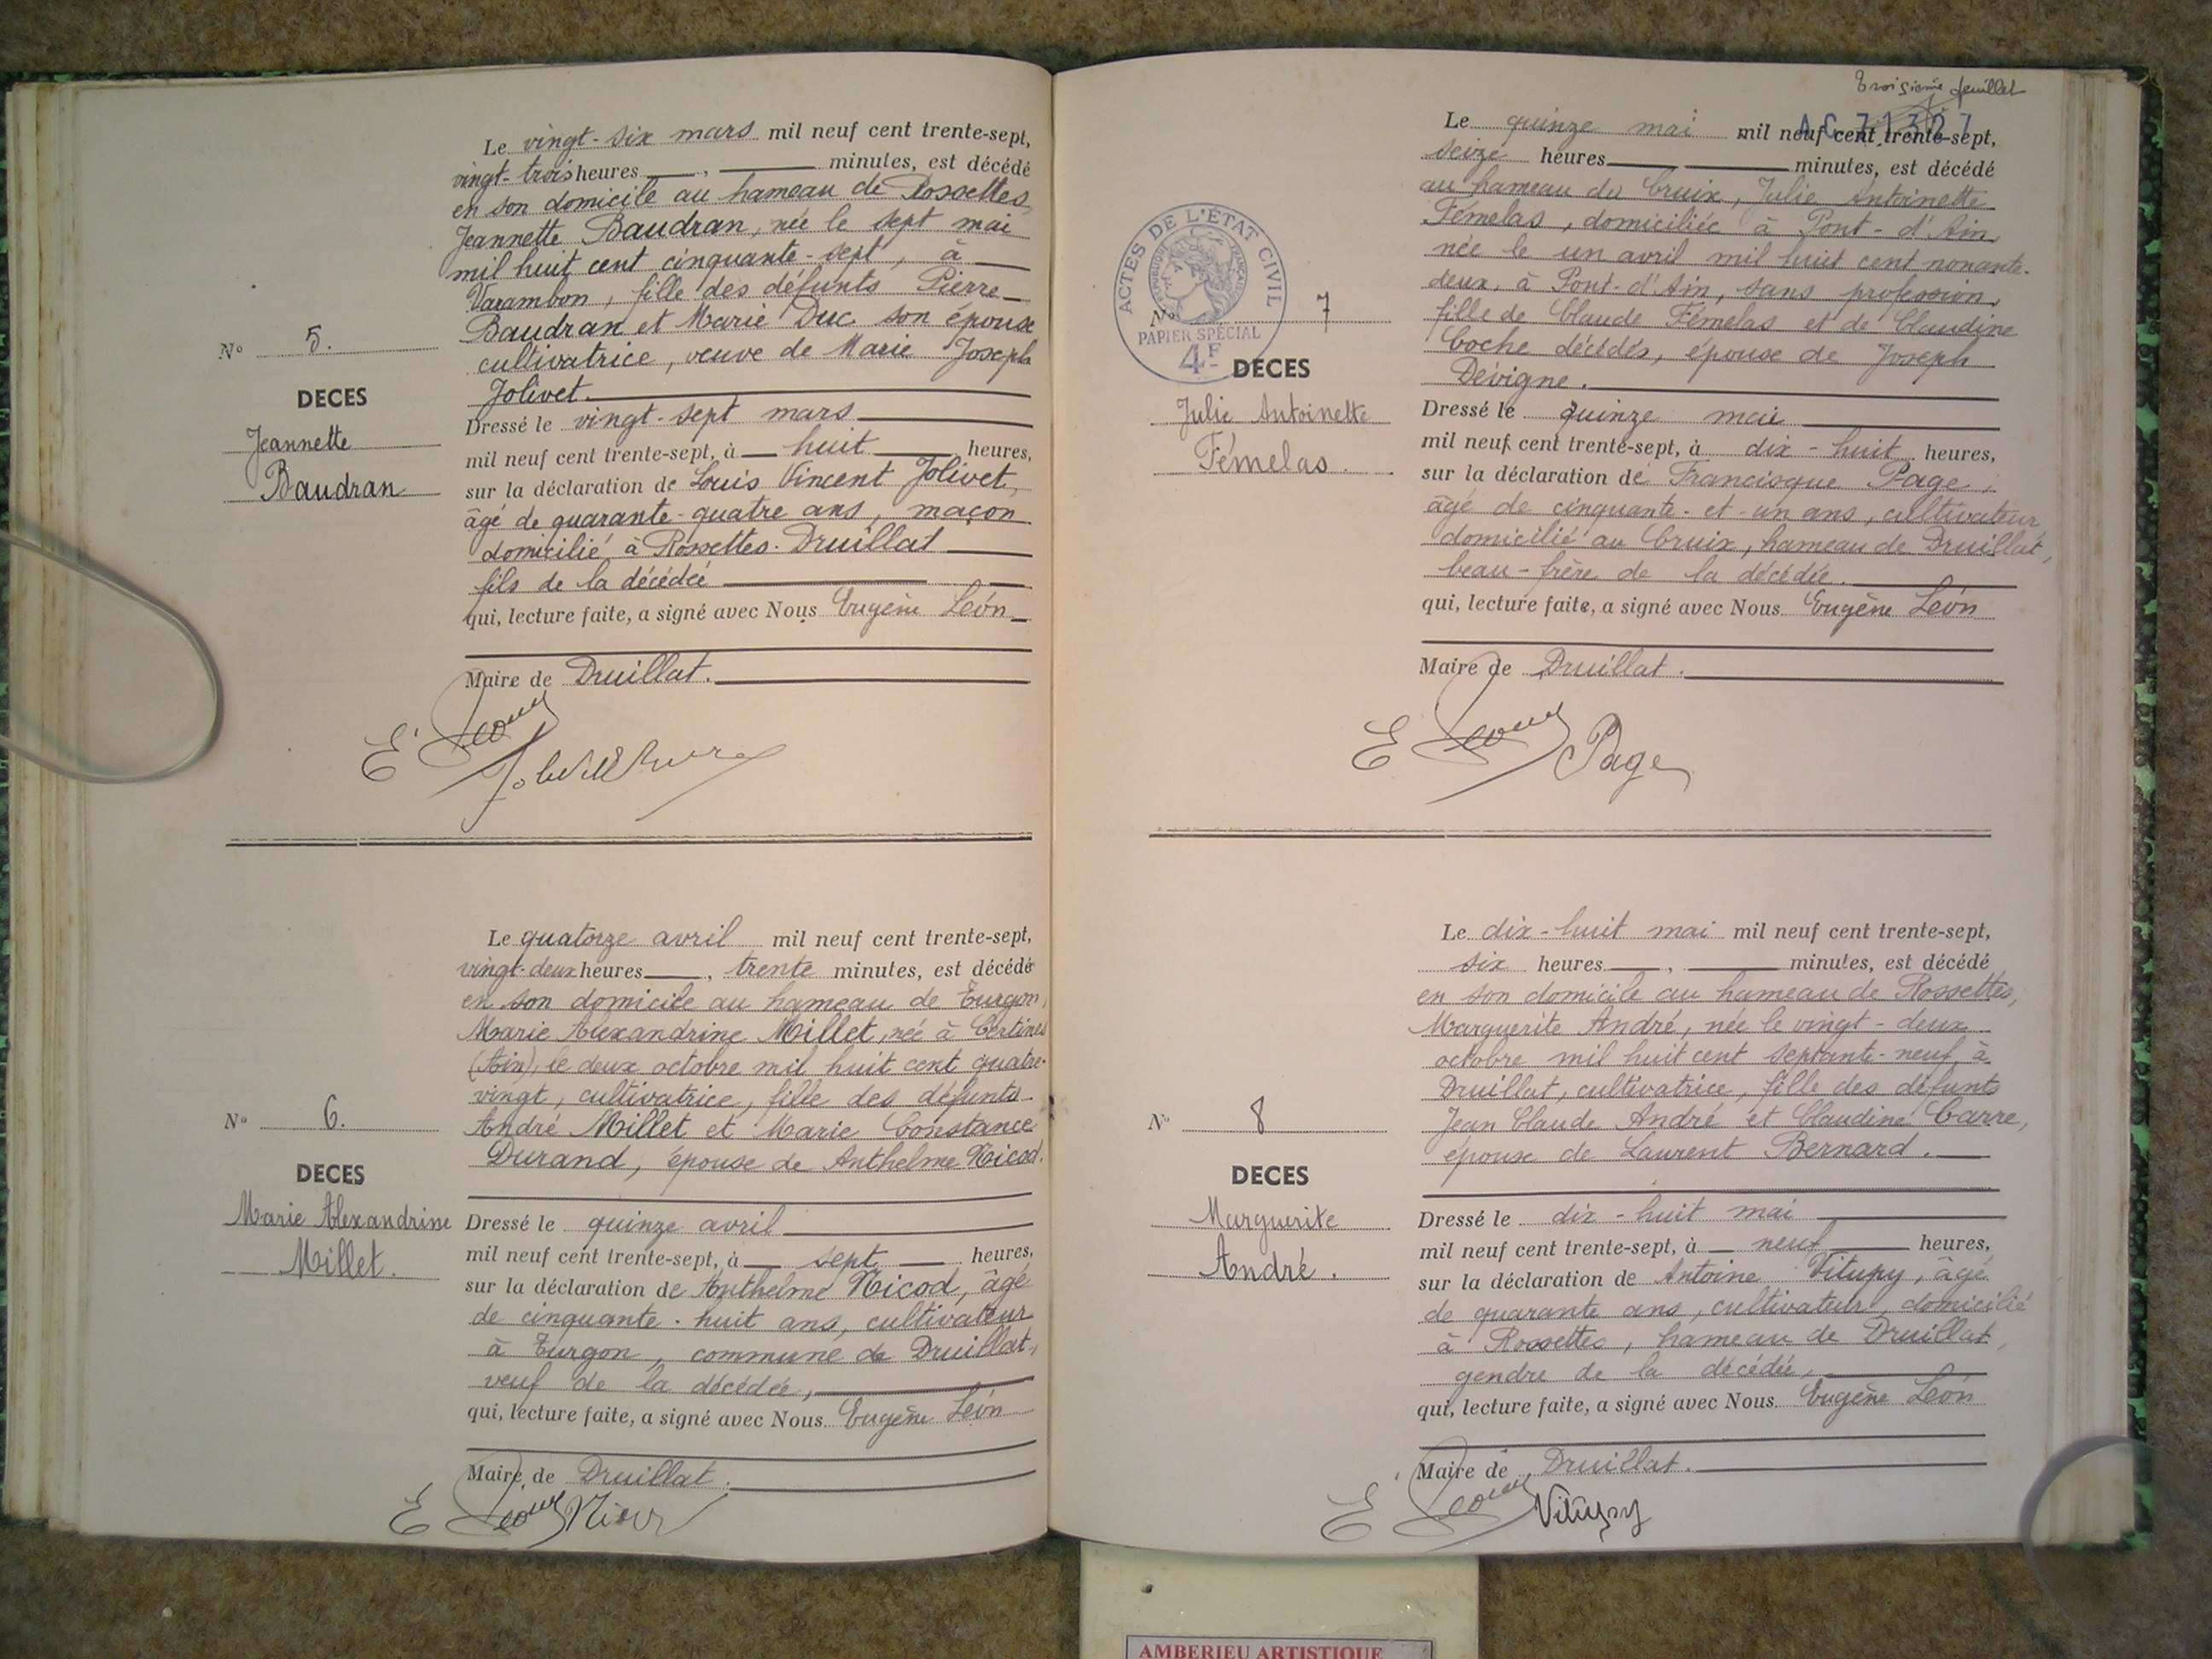 Le vingt-six mars mil neuf cent trente-sept,
vingt-trois heures , minutes, est décédé
en son domicile au hameau de Rossettes,
Jeannette Baudran, née le sept mai
mil huit cent cinquante-sept, à
Varambon, fille des défunts Pierre
Baudran et Marie Duc son épouse
cultivatrice, veuve de Marie Joseph
Jolivet.
N° 5.
DECES
Jeannette
Baudran
Dressé le vingt-sept mars
mil neuf cent trente-sept, à huit heures,
sur la déclaration de Louis Vincent Jolivet,
âgé de quarante-quatre ans, maçon
domicilié à Rossettes. Druillat
fils de la décédée
qui, lecture faite, a signé avec Nous Eugène Léon
Maire de Druillat.
E Léon
Le quatorze avril mil neuf cent trente-sept,
vingt-deux heures , trente minutes, est décédé
en son domicile au hameau de Turgon,
Marie Alexandrine Millet, née à Certines
(Ain), le deux octobre mil huit cent quatre-
vingt, cultivatrice, fille des défunts
André Millet et Marie Constance
Durand, épouse de Anthelme Nicod.
N° 6.
DECES
Marie Alexandrine
Millet.
Dressé le quinze avril
mil neuf cent trente-sept, à sept heures,
sur la déclaration de Anthelme Nicod, âgé
de cinquante-huit ans, cultivateur
à Turgon, commune de Druillat,
veuf de la décédée,
qui, lecture faite, a signé avec Nous Eugène Léon
Maire de Druillat.
E Léon
Troisième feuillet
Le quinze mai mil neuf cent trente-sept,
seize heures , minutes, est décédé
au hameau du Cruix, Julie Antoinette
Fémelas, domiciliée à Pont-d'Ain,
née le un avril mil huit cent nonante-
deux, à Pont-d'Ain, sans profession,
fille de Claude Fémelas et de Claudine
Coche décédés, épouse de Joseph
Dévigne.
ACTES DE L'ÉTAT CIVIL
RÉPUBLIQUE FRANÇAISE
PAPIER SPÉCIAL
4F
N° 7
DECES
Julie Antoinette
Fémelas.
Dressé le quinze mai
mil neuf cent trente-sept, à dix-huit heures,
sur la déclaration de Francisque Page,
âgé de cinquante-et-un ans, cultivateur,
domicilié au Cruix, hameau de Druillat,
beau-frère de la décédée.
qui, lecture faite, a signé avec Nous Eugène Léon
Maire de Druillat.
E Léon Page
Le dix-huit mai mil neuf cent trente-sept,
six heures , minutes, est décédé
en son domicile au hameau de Rossettes,
Marguerite André, née le vingt-deux
octobre mil huit cent septante-neuf, à
Druillat, cultivatrice, fille des défunts
Jean Claude André et Claudine Carre,
épouse de Laurent Bernard.
N° 8
DECES
Marguerite
André.
Dressé le dix-huit mai
mil neuf cent trente-sept, à neuf heures,
sur la déclaration de Antoine Vitupy, âgé
de quarante ans, cultivateur, domicilié
à Rossettes, hameau de Druillat,
gendre de la décédée,
qui, lecture faite, a signé avec Nous Eugène Léon
Maire de Druillat.
E Léon Vitupy
AMBERIEU ARTISTIQUE